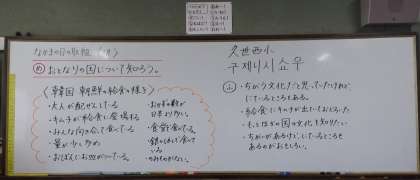 なかまの日の取組
め おとなりの国について知ろう。
〈韓国 朝鮮の給食の様子〉
・大人が配ぜんしている
・キムチが給食に登場する
・みんな向き合って食べている
・量が少し多め
・おぼんにお皿がついている。
・おかずの数が
日本より多い。
・食堂で食べている。
・銀のはしで食べて
いる
・のみものがない。
久世西小
구제니시쇼우
・ちがう文化だと思っていたけれど、
にているところもある。
・給食にキムチが出ていておどろいた
・もっとほかの国の文化を知りたい
・ちがいがあるけど、にているところも
あるのがおもしろい。